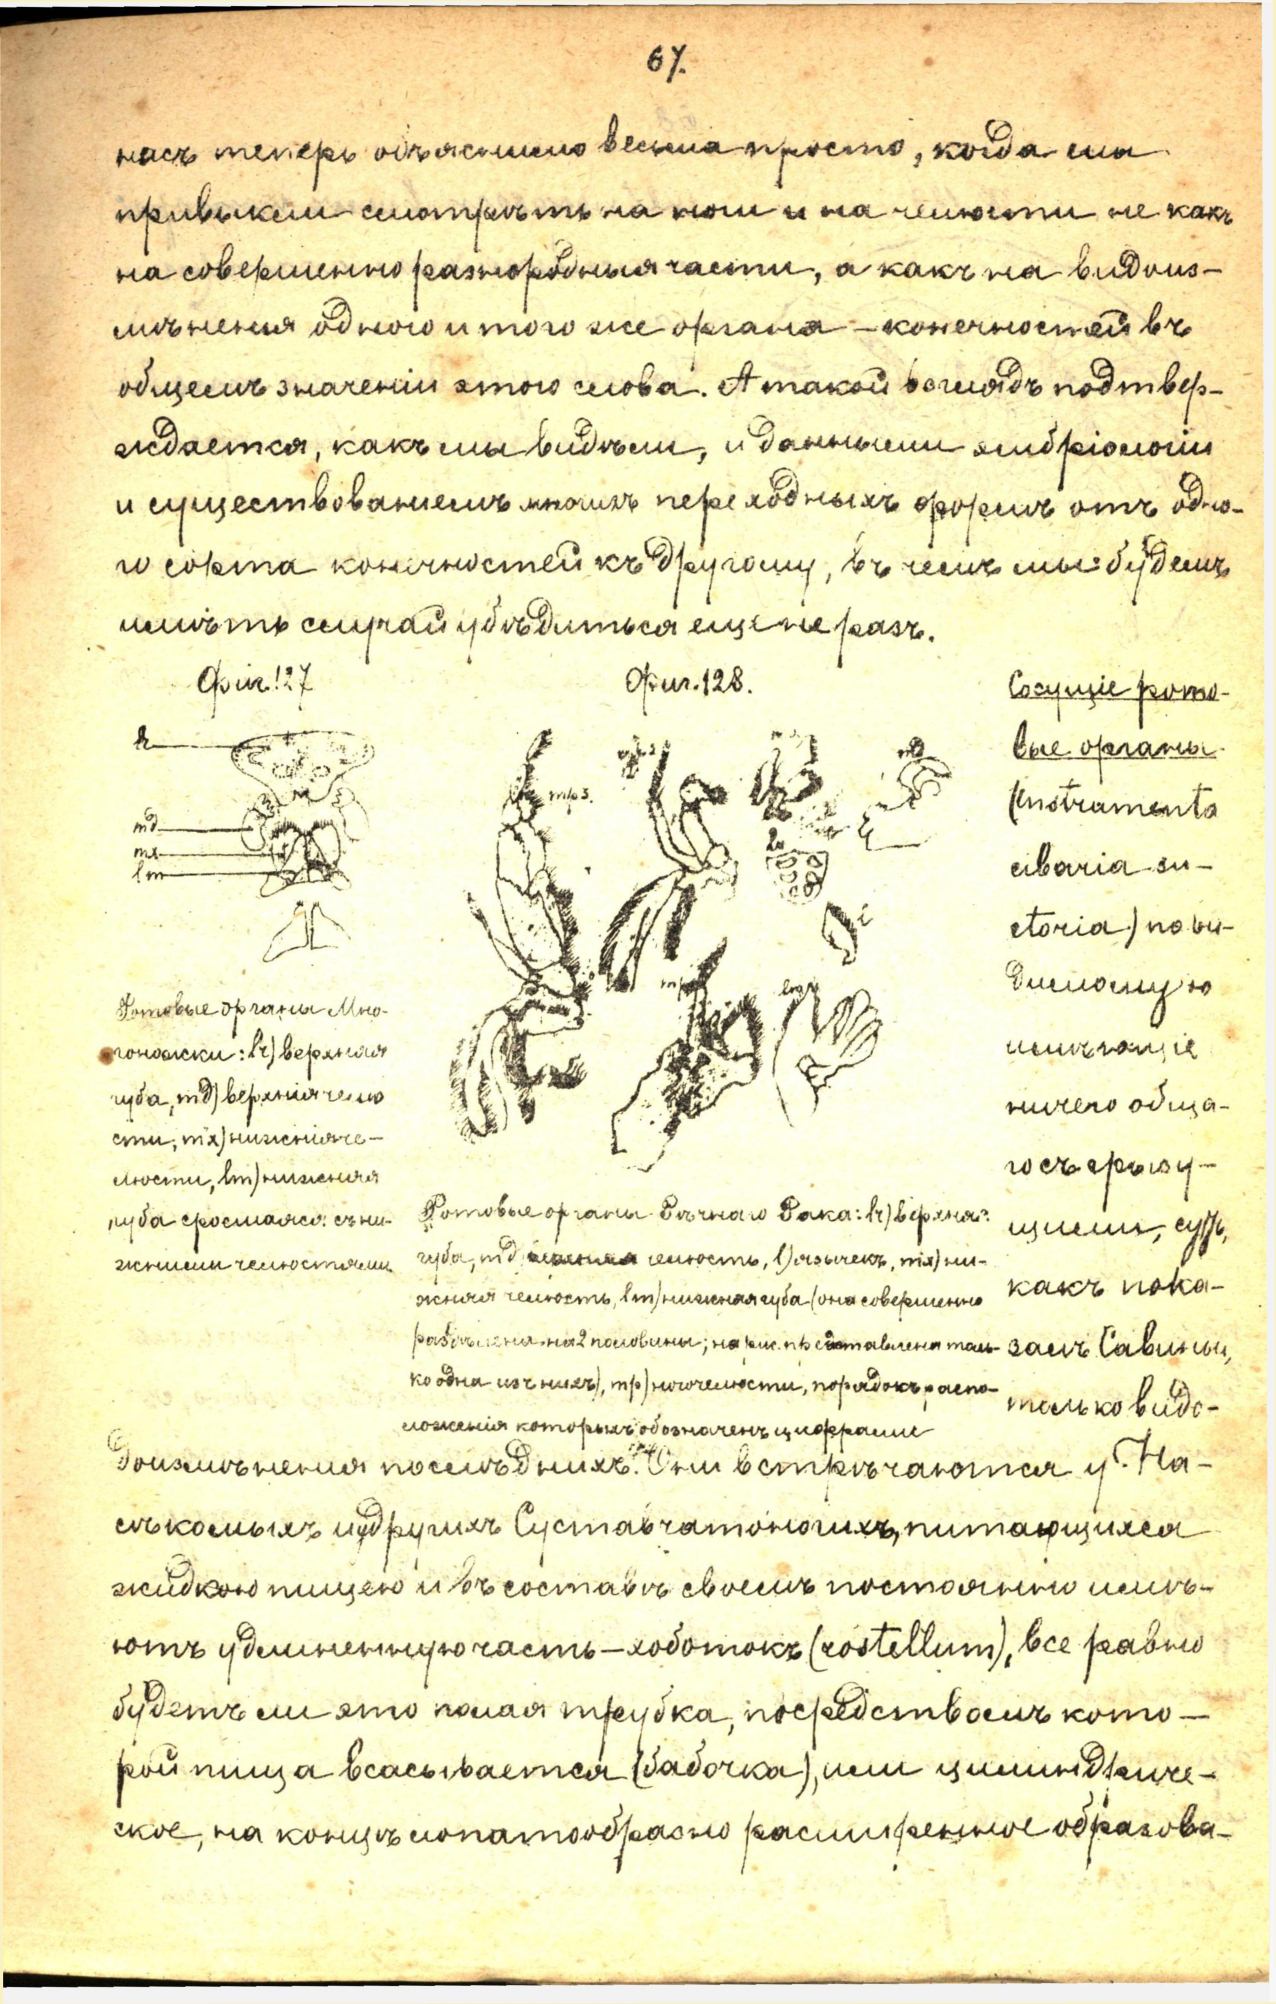 67.
насъ теперь объяснимо весьма просто, когда мы
привыкли смотрѣть на ноги и на челюсти не какъ
на совершенно разнородныя части, а какъ на видоиз-
мѣненія одного и того же органа – конечностей въ
общемъ значеніи этого слова. А такой взглядъ подтвер-
ждается, какъ мы видѣли, и данными эмбріологіи
и существованіемъ многихъ переходныхъ формъ отъ одно-
го сорта конечностей къ другому, въ чемъ мы будемъ
имѣть случай убѣдиться еще не разъ.
Фиг. 127
lr
md
mx
lm
Ротовые органы Мно-
гоножки: lr) верхняя
губа, md) верхнія челю
сти, mx) нижнія че-
люсти, lm) нижняя
губа сросшаяся съ ни-
жними челюстями
Фиг. 128.
mp3.
Ротовые органы Рѣчнаго Рака: lr) верхняя
губа, md челюсть, l) язычекъ, mx) ни-
жняя челюсть, lm) нижняя губа (она совершенно
раздѣлена на 2 половины; на рис. представлена толь-
ко одна изъ нихъ), mp) ногочелюсти, порядокъ распо-
ложенія которыхъ обозначенъ цифрами
Сосущіе рото-
вые органы
(Instramenta
cibaria su-
ctoria) по ви-
димому ю
имѣющіе
ничего обща-
го съ грызу-
щими, суть,
какъ пока-
залъ Савиньи,
только видо-
доизмѣненія послѣднихъ. Они встрѣчаются у На-
сѣкомыхъ и другихъ Суставчатоногихъ, питающихся
жидкою пищею и въ составѣ своемъ постоянно имѣ-
ютъ удлиненную часть – хоботокъ (rostellum), все равно
будетъ ли это полая трубка, посредствомъ кото-
рой пища всасывается (бабочка), или цилиндриче-
ское, на концѣ лопатообразно расширенное образова-